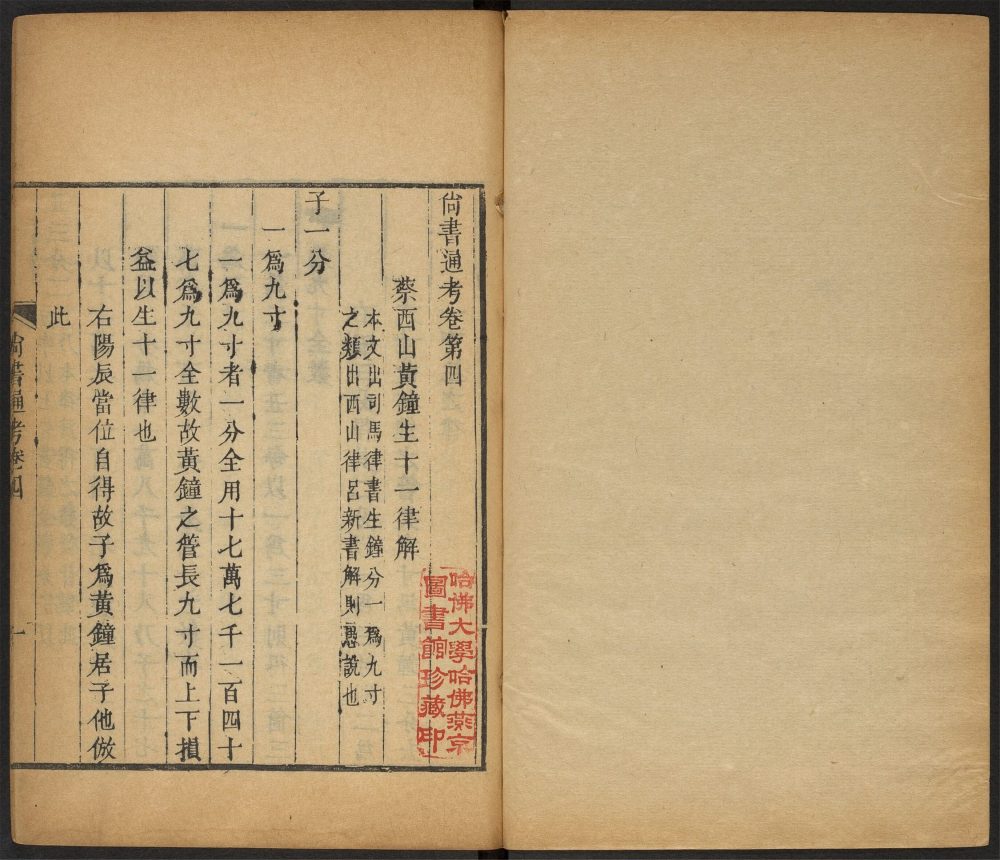 尙書通考卷第四
蔡西山黃鐘生十一律解
本文出司馬律書生鐘分一爲九寸
之類出西山律呂新書解則愚說也
子一分
一爲九寸
一爲九寸者一分全用十七萬七千一百四十
七爲九寸全數故黃鐘之管長九寸而上下損
益以生十一律也
右陽辰當位自得故子爲黃鐘居子他倣
此
尙書通考卷四
一
哈佛大學哈佛燕京
圖書館珍藏印